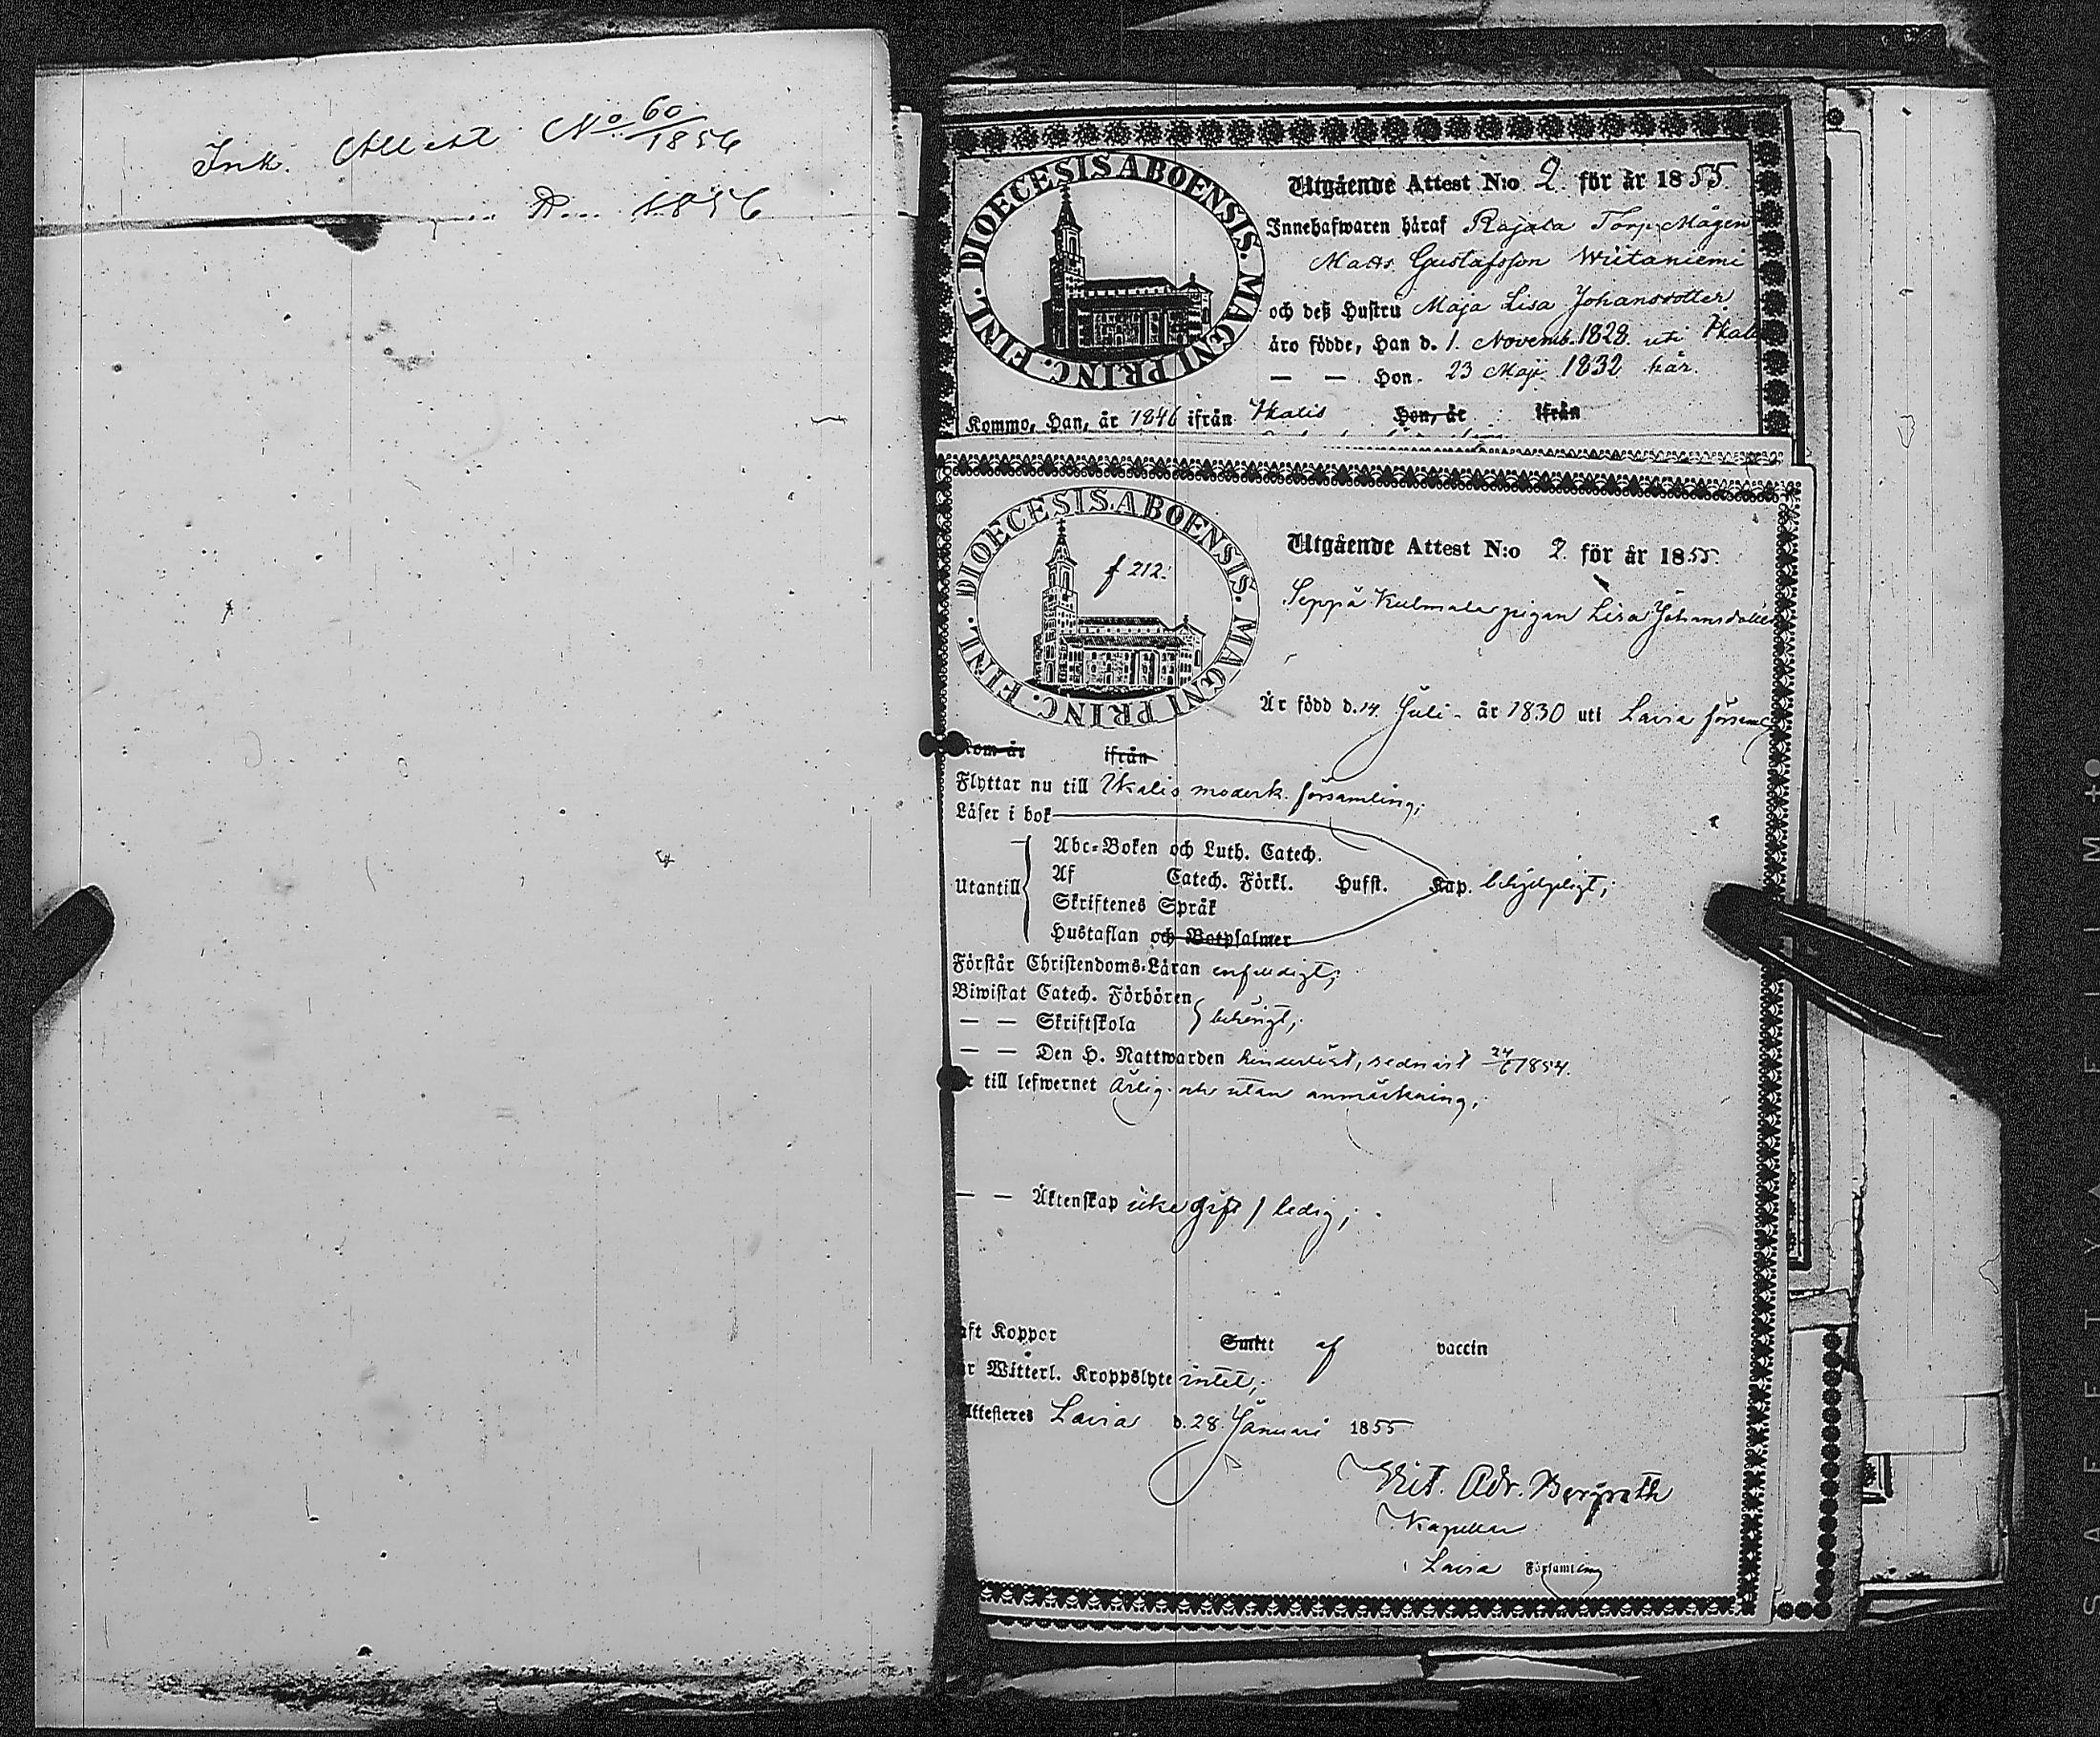 Ink. Attest No 60/1856
1856
DIOECESIS ABOENSIS. MAGNI PRINC. FINL.
Utgående Attest N:o 2. för år 1855.
Innehafwaren häraf Rajala Torp. Mågen
Matts Gustafsson Wiitaniemi
och deß Hustru Maja Lisa Johansdotter
äro födde, Han d. 1. Novemb. 1828. uti Ikalis
— — Hon. 23 Maji 1832 här.
Kommo, Han, år 1846 ifrån Ikalis Hon, år ifrån
DIOECESIS ABOENSIS. MAGNI PRINC. FINL.
f 212.
Utgående Attest N:o 2. för år 1855.
Seppä Kulmala pigan Lisa Johansdotter
Är född d. 14. Juli år 1830 uti Lavia församl
Kom år ifrån
Flyttar nu till Ikalis moderk. församling;
Läser i bok
Utantill
Abc-Boken och Luth. Catech.
Af Catech. Förkl. Hufst. Kap. behjelpligt;
Skriftenes Språk
Hustaflan och Botpsalmer
Förstår Christendoms-Läran enfaldigt;
Biwistat Catech. Förhören
— — Skriftskola behörigt;
— — Den H. Nattwarden hinderlöst, sednast 24/6 1854.
r till lefwernet ärlig och utan anmärkning;
— — Äktenskap icke gift / ledig;
aft Koppor Smitt af vaccin
ar Witterl. Kroppslyte intet;
Attesteres Lavia d. 28. Januari 1855
Vict. Adr. Bergroth
Kapellan
i Lavia Församling
SAFETY FILM